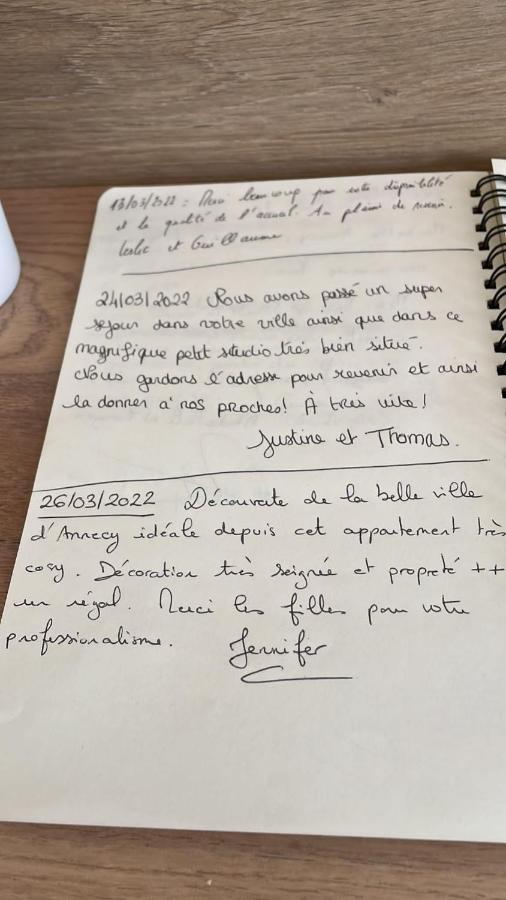 13/03/2022 : Merci beaucoup pour votre disponibilité
et la qualité de l'accueil. Au plaisir de revenir.
Leslie et Guillaume
24/03/2022 Nous avons passé un super
séjour dans votre ville ainsi que dans ce
magnifique petit studio très bien situé.
Nous gardons l'adresse pour revenir et ainsi
la donner à nos proches! À très vite!
Justine et Thomas.
26/03/2022 Découverte de la belle ville
d'Annecy idéale depuis cet appartement très
cosy. Décoration très soignée et propreté ++
un régal. Merci les filles pour votre
professionnalisme.
Jennifer